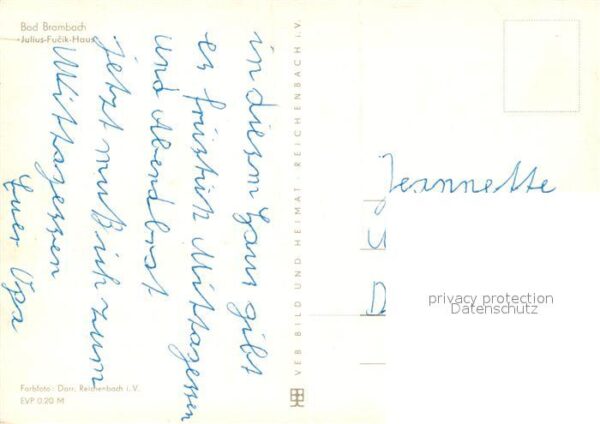 Bad Brambach
Julius-Fučik-Haus
in diesem Haus gibt
es früstük Mittagessen
und Abendbrot
jetzt muß ich zum
Mittagessen
Euer Opa
Farbfoto: Darr, Reichenbach i. V.
EVP 0,20 M
VEB BILD UND HEIMAT REICHENBACH i. V.
Jeannette
D
privacy protection
Datenschutz